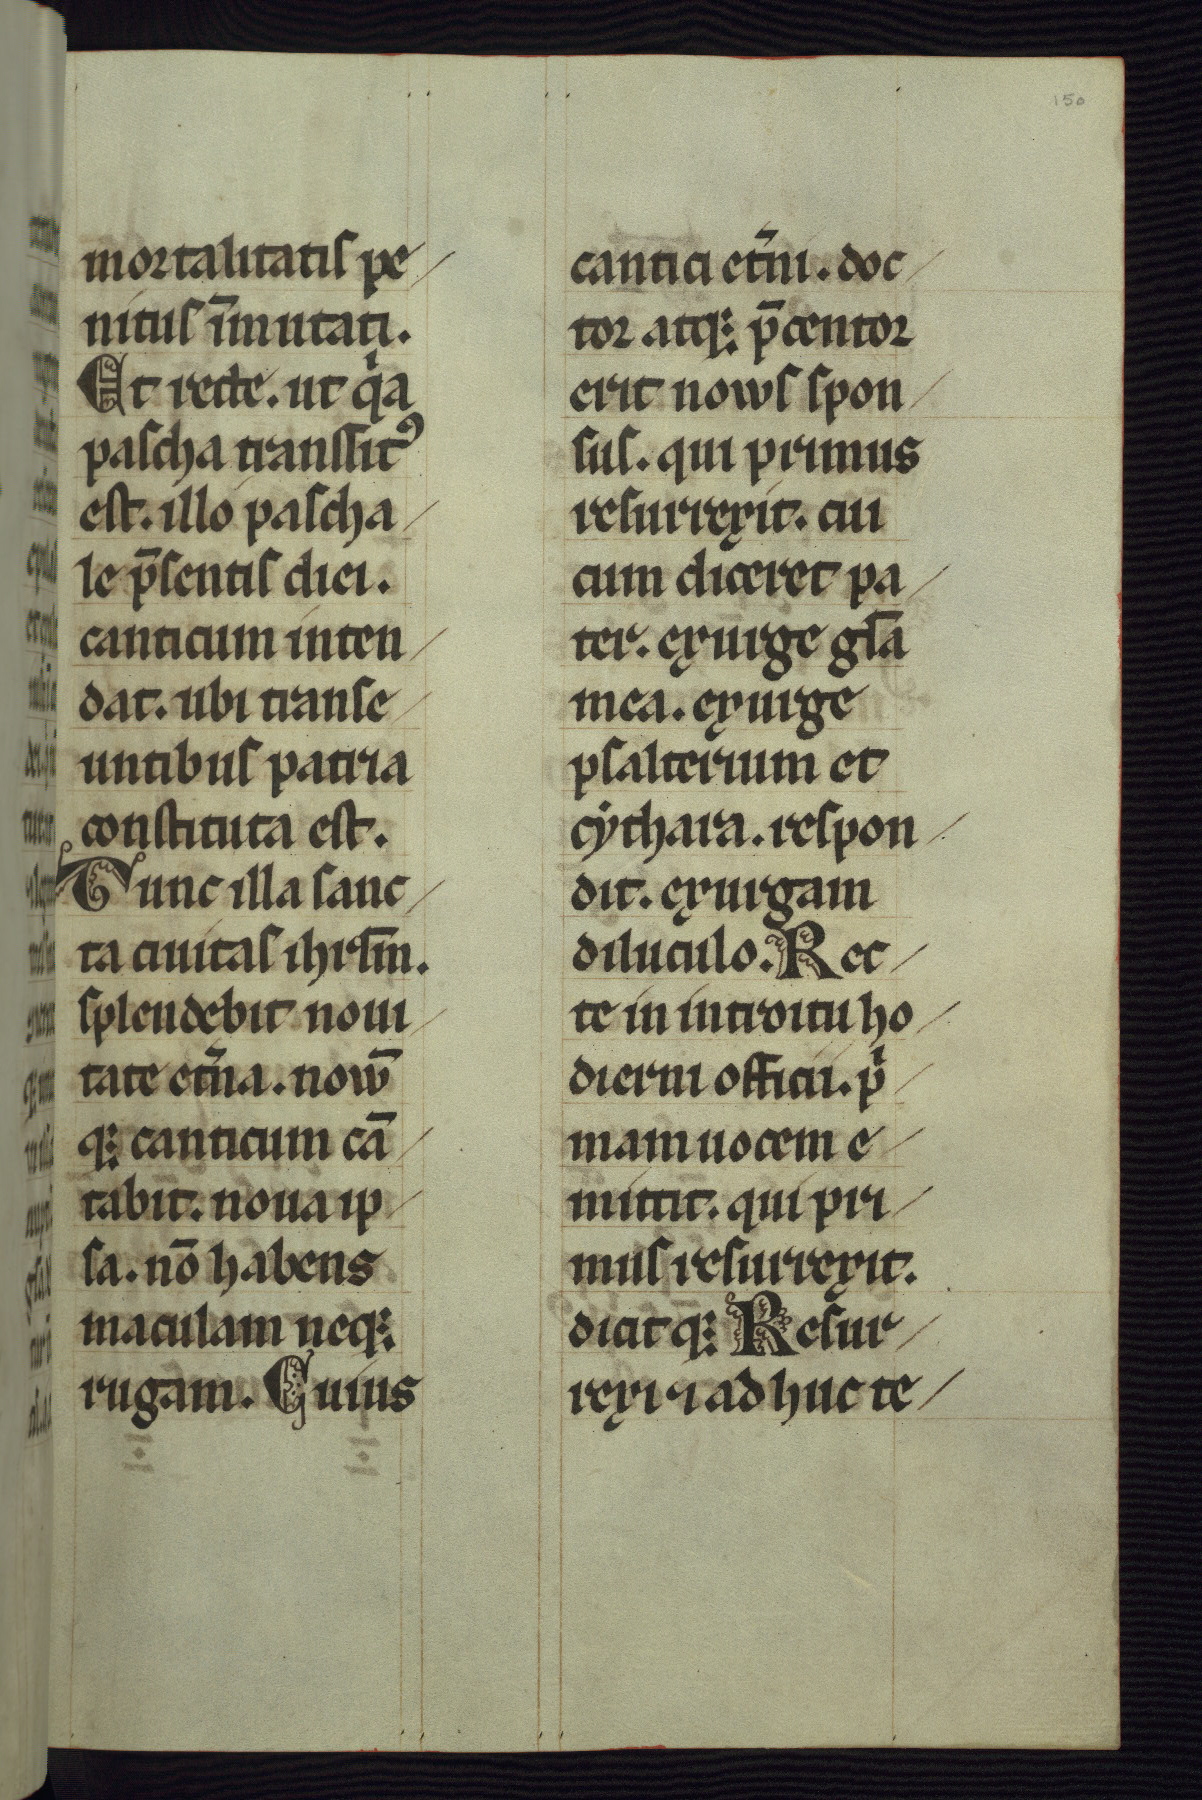 150
mortalitatis pe/
nitus īmutati.
Et recte. ut qͥa
pascha transsitꝰ
est. illo pascha/
le p̄sentis diei.
canticum inten/
dat. ubi transe/
untibus patria
constituta est.
Tunc illa sanc/
ta ciuitas ihrlm̄.
splendebit noui/
tate et̄na. nouū
q; canticum cā/
tabit. noua ip/
sa. nō habens
maculam neq;
rugam. Cuius
cantici et̄ni. doc/
tor atq; p̄centor
erit nouus spon/
sus. qui primus
resurrexit. cui
cum diceret pa/
ter. exurge gl̄a
mea. exurge
psalterium et
cythara. respon/
dit. exurgam
diluculo. Rec/
te in introitu ho/
dierni officii. pͥ/
mam uocem e/
mittit. qui pri/
mus resurrexit.
dicit q; Resur/
rexi ⁊ adhuc te/